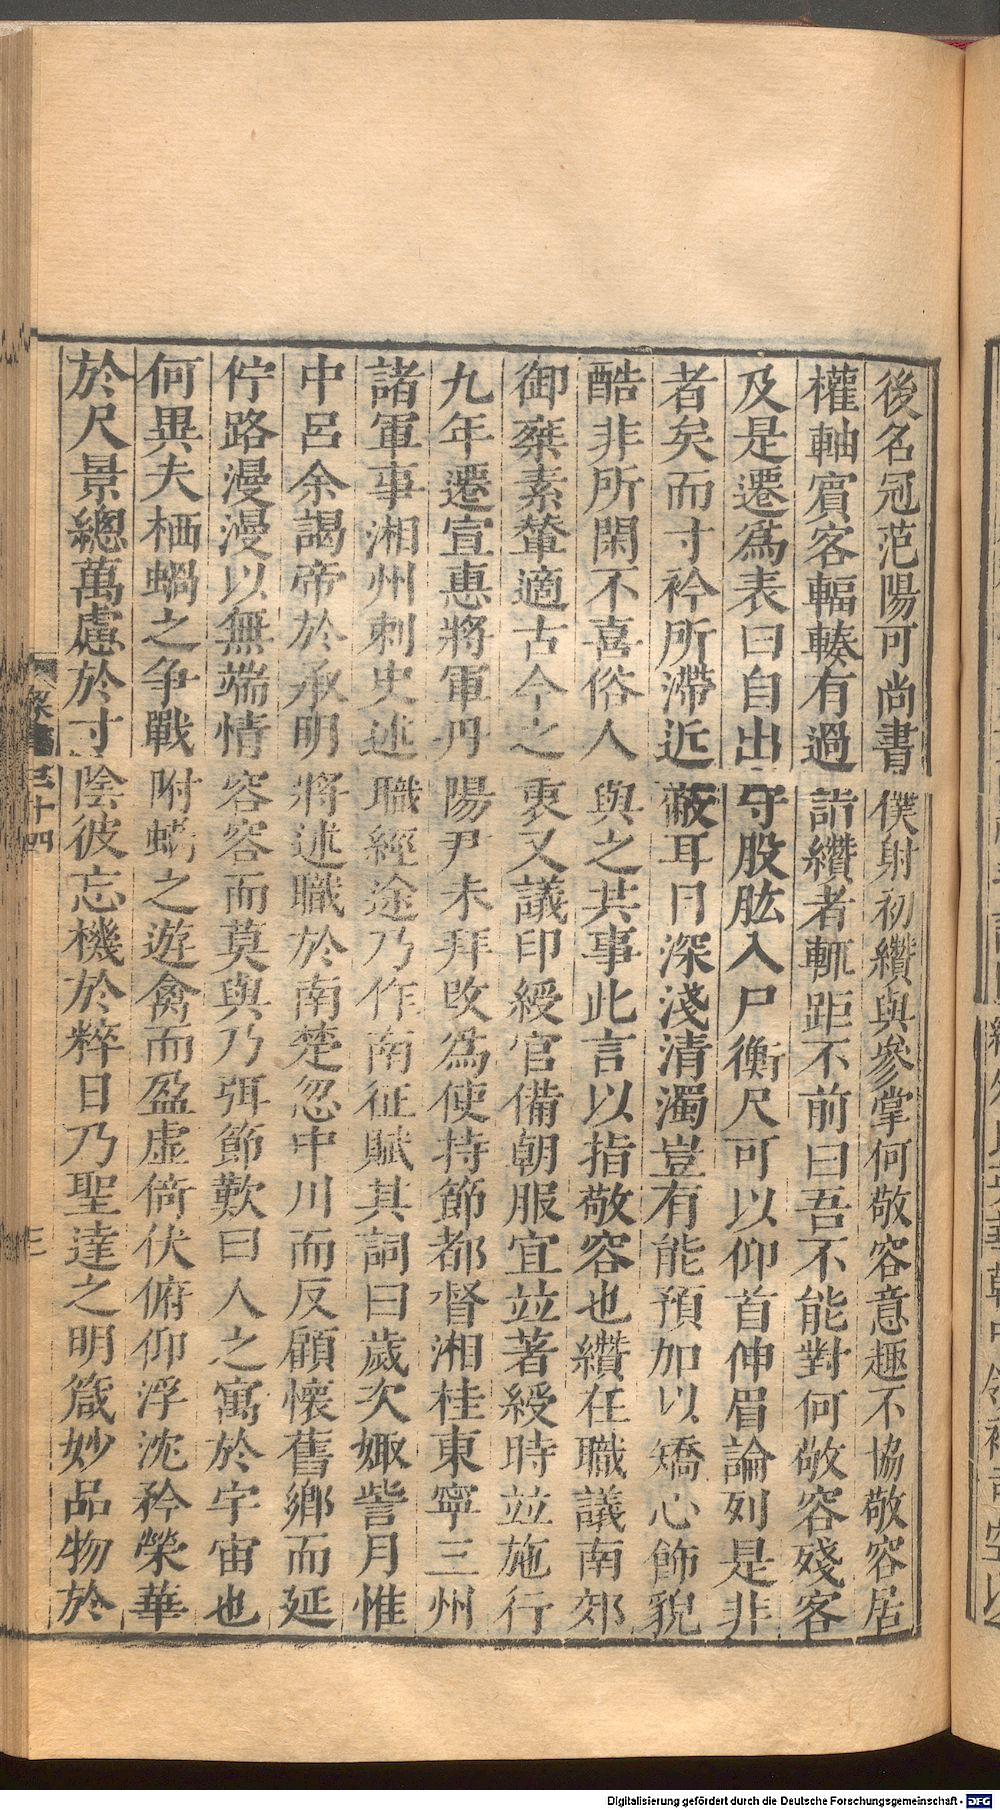 後名冠范陽可尚書僕射初纘與參掌何敬容意趣不協敬容居
權軸賓客輻輳有過詣纘者輒距不前曰吾不能對何敬容殘客
及是遷爲表曰自出守股肱入尸衡尺可以仰首伸眉論列是非
者矣而寸衿所滯近蔽耳目深淺清濁豈有能預加以矯心飾貌
酷非所閑不喜俗人與之共事此言以指敬容也纘在職議南郊
御桒素輦適古今之衷又議印綬官備朝服宜竝著綬時竝施行
九年遷宣惠將軍丹陽尹未拜改爲使持節都督湘桂東寧三州
諸軍事湘州刺史述職經途乃作南征賦其詞曰歲次娵訾月惟
中呂余謁帝於承明將述職於南楚忽中川而反顧懷舊鄉而延
佇路漫漫以無端情容容而莫與乃弭節歎曰人之寓於宇宙也
何異夫栖蝸之爭戰附蚋之遊禽而盈虛倚伏俯仰浮沈矜榮華
於尺景總萬慮於寸陰彼忘機於粹日乃聖達之明箴妙品物於
梁書三十四
三
Digitalisierung gefördert durch die Deutsche Forschungsgemeinschaft - DFG